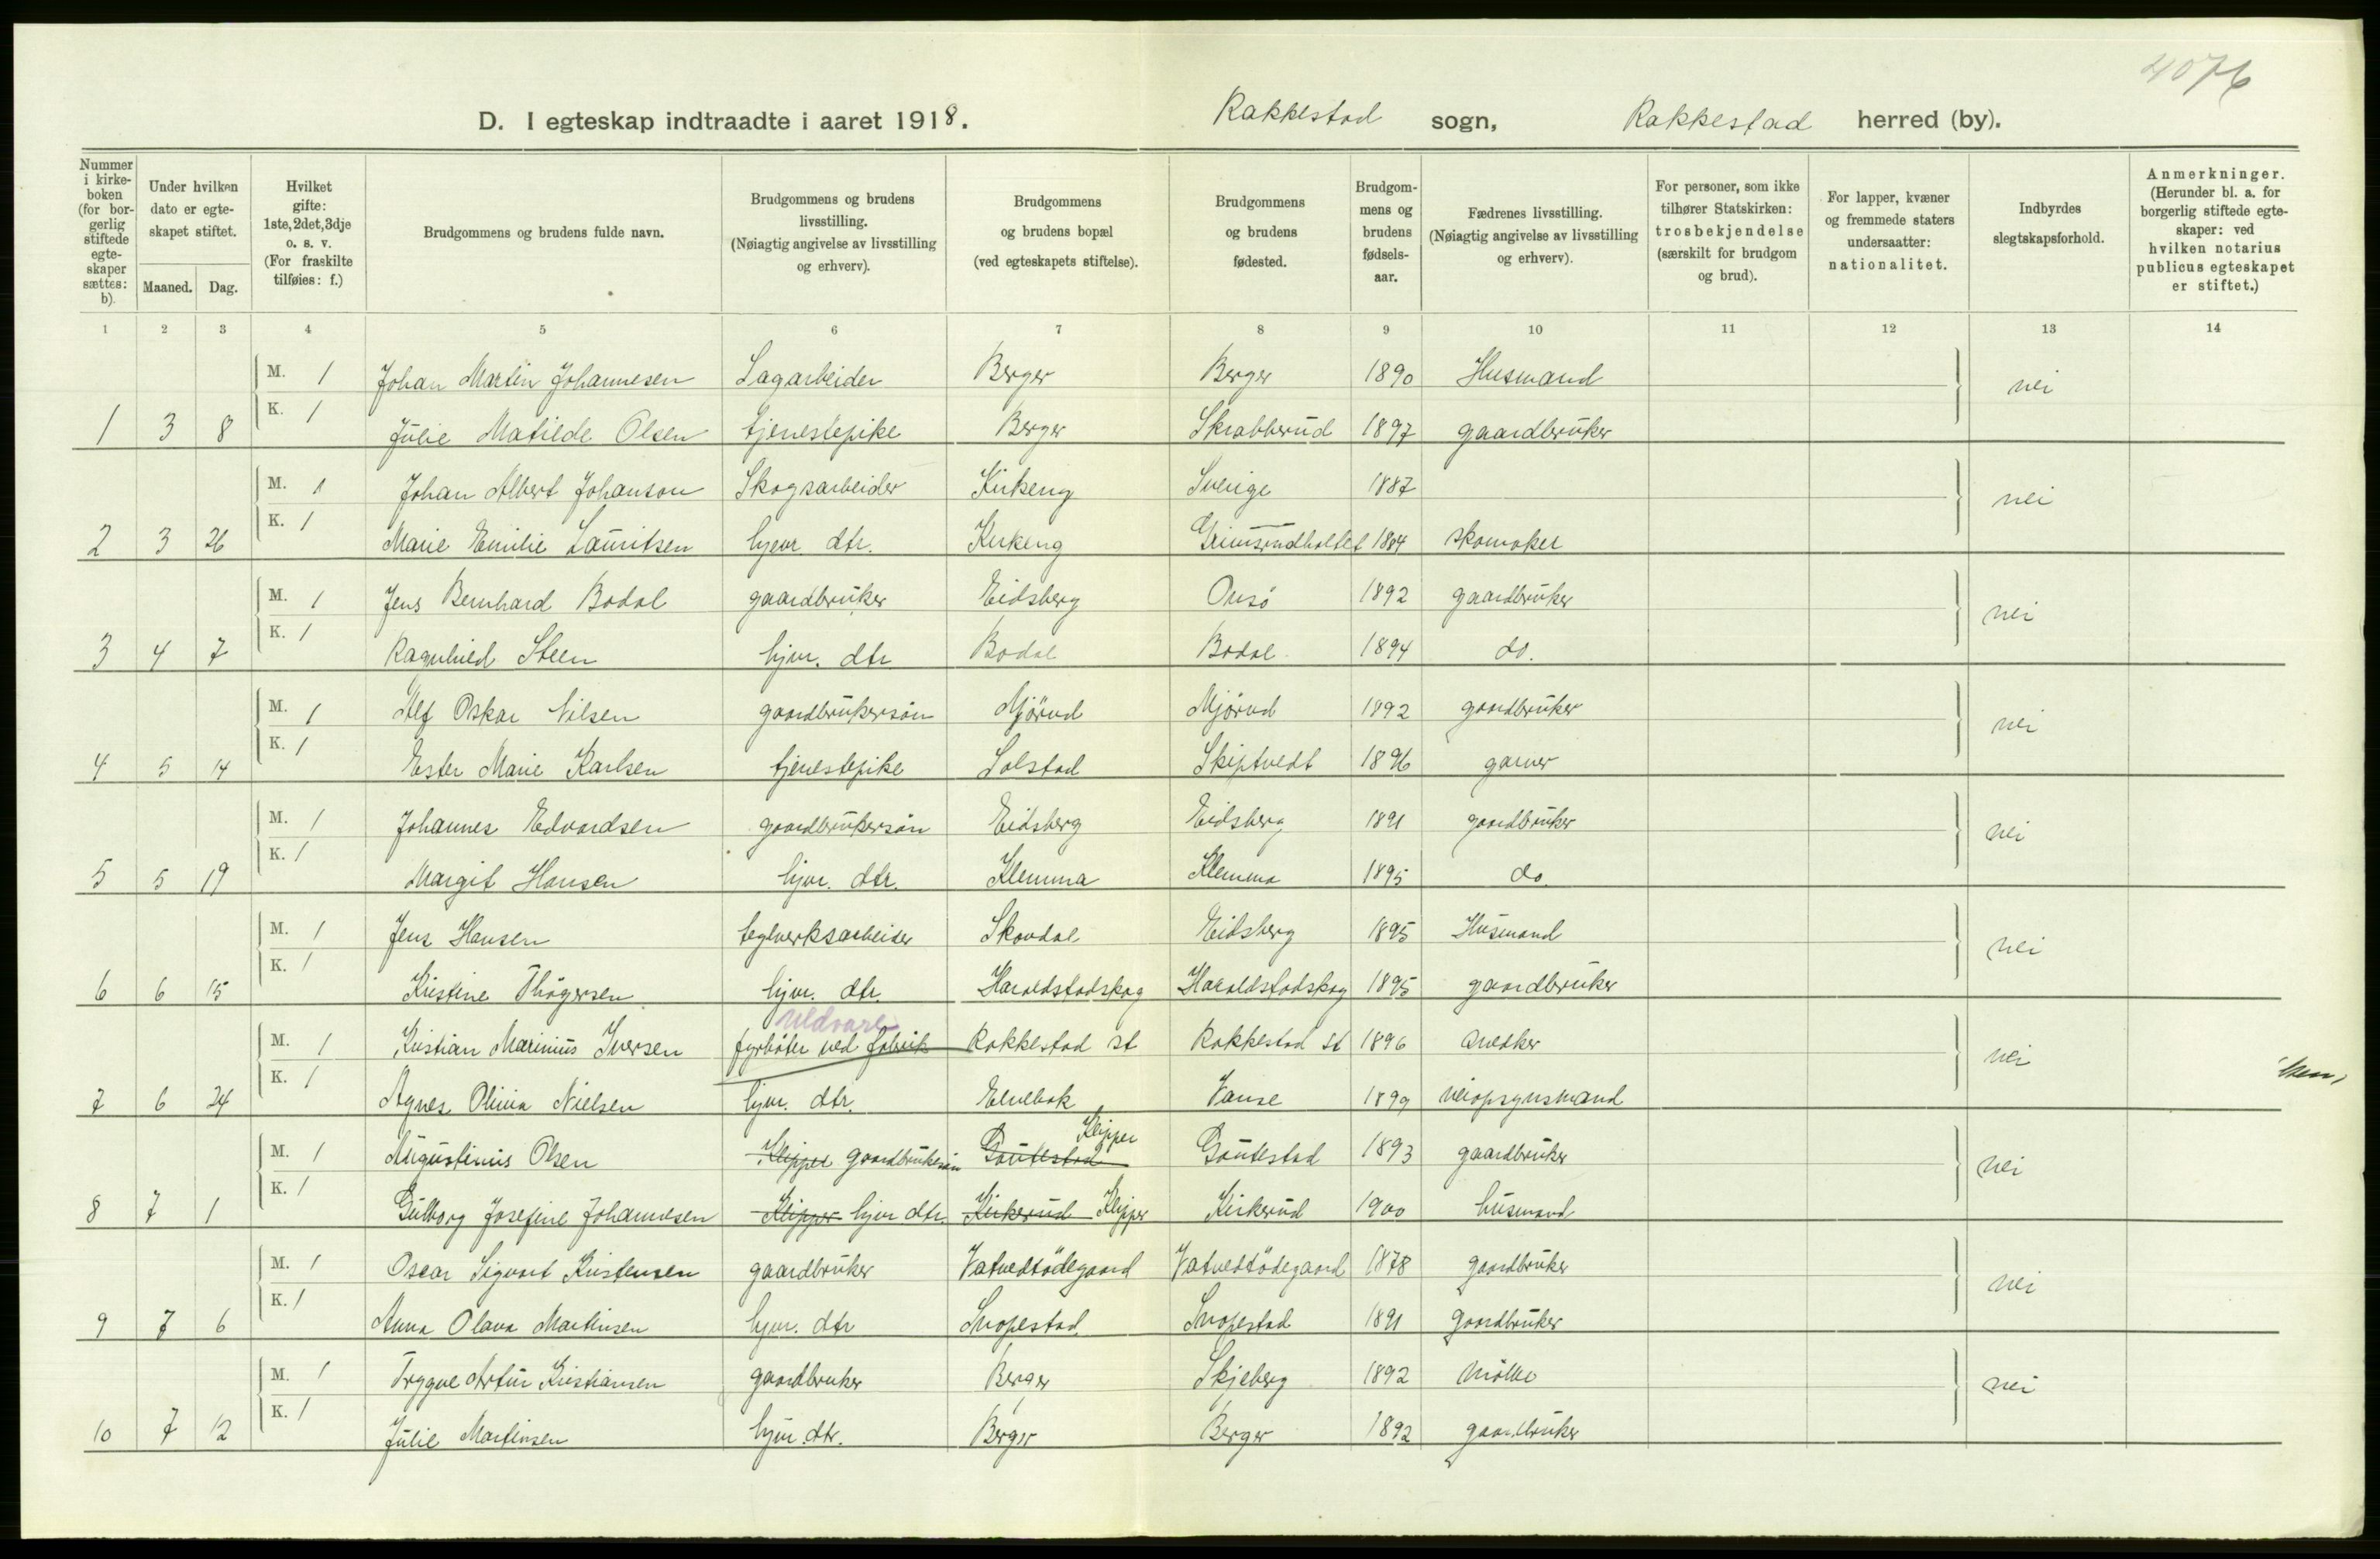 4076
D. I egteskap indtraadte i aaret 1918. Rakkestad sogn, Rakkestad herred (by).
Nummer i kirkeboken (for borgerlig stiftede egteskaper sættes: b).
Under hvilken dato er egteskapet stiftet.
Maaned. Dag.
Hvilket gifte: 1ste, 2det, 3dje o. s. v. (For fraskilte tilføies: f.)
Brudgommens og brudens fulde navn.
Brudgommens og brudens livsstilling. (Nøiagtig angivelse av livsstilling og erhverv).
Brudgommens og brudens bopæl (ved egteskapets stiftelse).
Brudgommens og brudens fødested.
Brudgommens og brudens fødselsaar.
Fædrenes livsstilling. (Nøiagtig angivelse av livsstilling og erhverv).
For personer, som ikke tilhører Statskirken: trosbekjendelse (særskilt for brudgom og brud).
For lapper, kvæner og fremmede staters undersaatter: nationalitet.
Indbyrdes slegtskapsforhold.
Anmerkninger. (Herunder bl. a. for borgerlig stiftede egteskaper: ved hvilken notarius publicus egteskapet er stiftet.)
1 2 3 4 5 6 7 8 9 10 11 12 13 14
M. 1 Johan Martin Johannesen Sagarbeider Berger Berger 1890 Husmand nei
1 3 8 K. 1 Julie Matilde Olsen tjenestepike Berger Skrabberud 1897 gaardbruker
M. 1 Johan Albert Johanson Skogsarbeider Kirkeng Sverige 1887 nei
2 3 26 K. 1 Marie Emilie Lauritsen hjem. dtr. Kirkeng Grimsrudholtet 1884 skomaker
M. 1 Jens Bernhard Bodal gaardbruker Eidsberg Onsö 1892 gaardbruker nei
3 4 7 K. 1 Ragnhild Steen hjm. dtr Bodal Bodal 1894 do.
M. 1 Alf Oskar Nilsen gaardbrukersön Mjörud Mjörud 1892 gaardbruker nei
4 5 14 K. 1 Ester Marie Karlsen tjenestepike Solstad Skiptvedt 1896 garver
M. 1 Johannes Edvardsen gaardbrukersön Eidsberg Eidsberg 1891 gaardbruker nei
5 5 19 K. 1 Margit Hansen hjm. dtr. Klemma Klemma 1895 do.
M. 1 Jens Hansen teglverksarbeider Skovdal Eidsberg 1895 Husmand nei
6 6 15 K. 1 Kristine Thögersen hjm. dtr. Haraldstadskog Haraldstadskog 1895 gaardbruker
uldvare
M. 1 Kristian Marinius Iversen fyrböter ved fabrik Rakkestad st Rakkestad st 1896 snedker nei
7 6 24 K. 1 Agnes Olivia Nielsen hjm. dtr. Elvebak Vanse 1899 veiopsynsmand
Klipper
M. 1 Augustinus Olsen Klipper gaardbrukersön Gautestad Gautestad 1893 gaardbruker nei
8 7 1 K. 1 Gulborg Josefine Johannesen Klipper hjem dtr. Kirkerud Klipper Kirkerud 1900 husmand
M. 1 Oscar Sigvart Kristensen gaardbruker Vatvedtödegaard Vatvedtödegaard 1878 gaardbruker nei
9 7 6 K. 1 Anna Olava Martinsen hjm. dtr Snopestad Snopestad 1891 gaardbruker
M. 1 Trygve Artur Kristiansen gaardbruker Berger Skjeberg 1892 möller nei
10 7 12 K. 1 Julie Martinsen hjm. dtr. Berger Berger 1892 gaardbruker